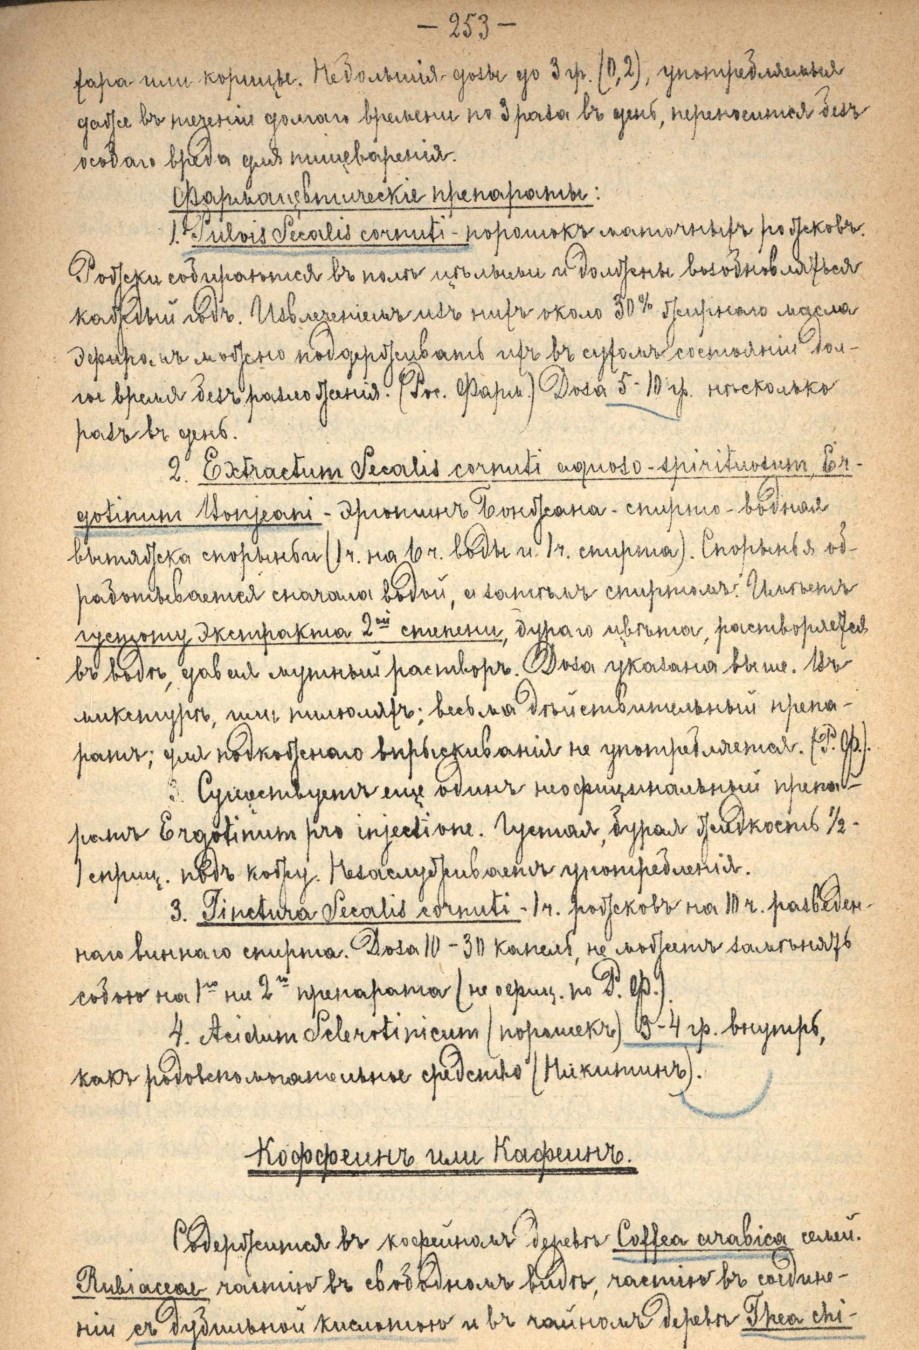 — 253 —
хара или корицы. Небольшія дозы до 3 гр. (0,2), употребляемыя
даже въ теченіи долгаго времени по 3 раза въ день, переносится безъ
особаго вреда для пищеваренія.
Фармацевтическіе препараты:
1. Pulvis Secalis cornuti - порошокъ маточныхъ рожковъ.
Рожки собираются въ полѣ цѣлыми и должны возобновляться
каждый годъ. Извлеченіемъ изъ нихъ около 30% жирнаго масла
эфиромъ можно поддерживать ихъ въ сухомъ состояніи дол-
гое время безъ разложенія. (Рос. Фарм.) Доза 5-10 гр. нѣсколько
разъ въ день.
2. Extractum Secalis cornuti aquoso-spirituosum, Er-
gotinum Bonjeani - эрготинъ Бонжана - спирто-водная
вытяжка спорыньи (1 ч. на 6 ч. воды и 1 ч. спирта). Спорынья об-
работывается сначала водой, а затѣмъ спиртомъ. Имѣетъ
густоту экстракта 2ой степени, бураго цвѣта, растворяется
въ водѣ, давая мутный растворъ. Доза указана выше. Въ
микстурѣ, или пилюляхъ; весьма дѣйствительный препа-
ратъ; для подкожнаго впрыскиванія не употребляется. (Р. Ф.).
3. Существуетъ еще одинъ неофицинальный препа-
ратъ Ergotinum pro injectione. Густая, бурая жидкость ½-
1 сприц. подъ кожу. Незаслуживаетъ употребленія.
3. Tinctura Secalis cornuti - 1 ч. рожковъ на 10 ч. разведен-
наго виннаго спирта. Доза 10-30 капель, не можетъ замѣнять
собою ни 1го ни 2го препарата (не офиц. по Р. Ф.).
4. Acidum Sclerotinicum (порошекъ) 3-4 гр. внутрь,
какъ родовспомогательное средство (Никитинъ).
Коффеинъ или Кафеинъ.
Содержится въ кофейномъ деревѣ Coffea arabica семей.
Rubiaceae, частію въ свободномъ видѣ, частію въ соедине-
ніи съ дубильной кислотою и въ чайномъ деревѣ Thea chi-